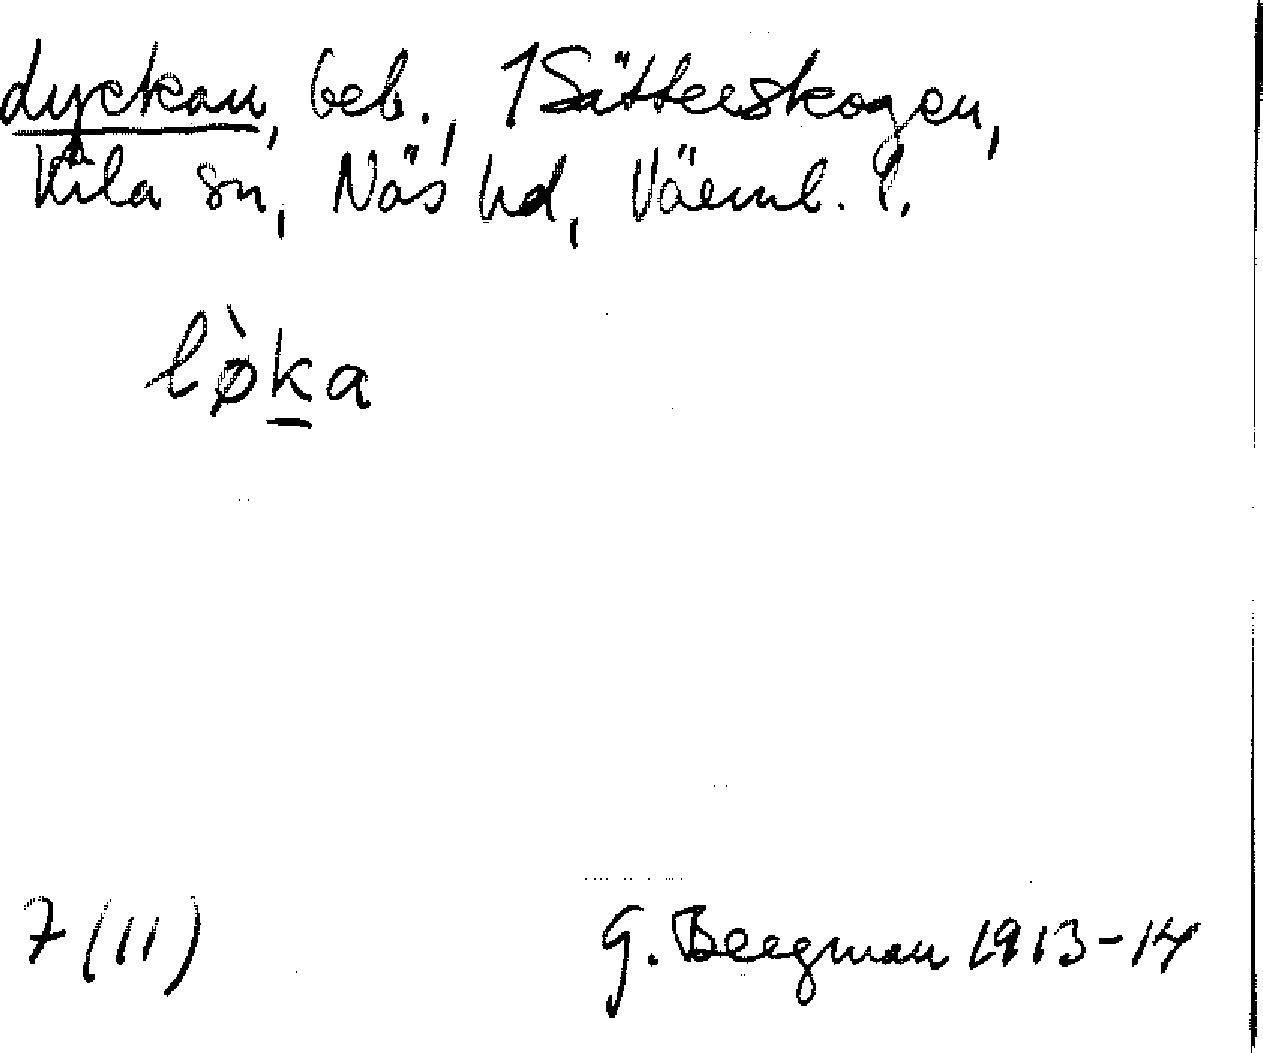 Lyckan, beb., 1 Sätterskogen,
Kila sn, Näs hd, Värml. l.
lø̀ka
7 (11)
G. Bergman 1913-14